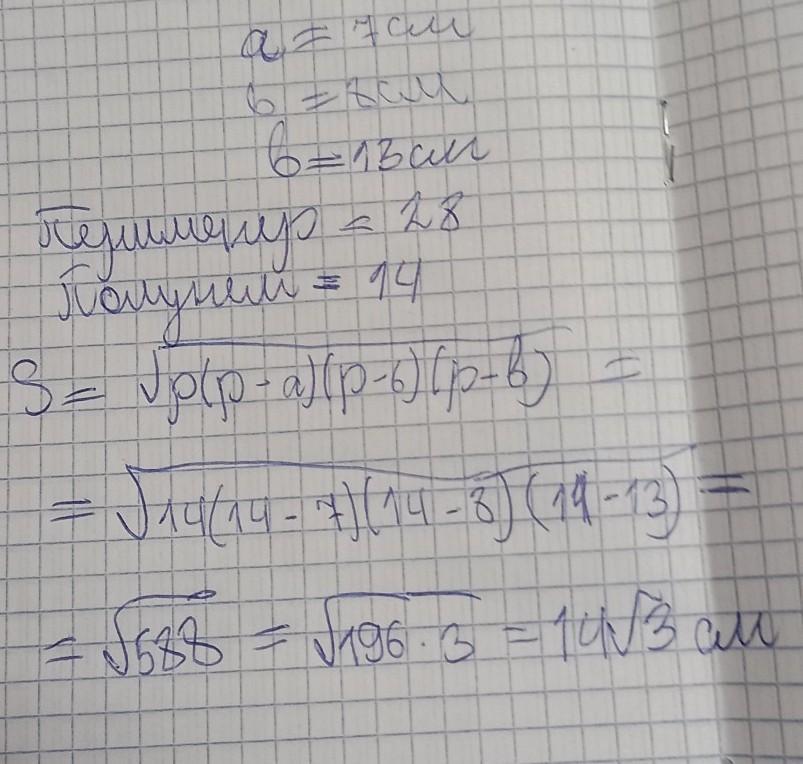 a = 7 см
б = 8 см
в = 13 см
Периметр = 28
Полупем = 14
S = √p(p-a)(p-б)(p-в) =
= √14(14-7)(14-8)(14-13) =
= √588 = √196·3 = 14√3 см